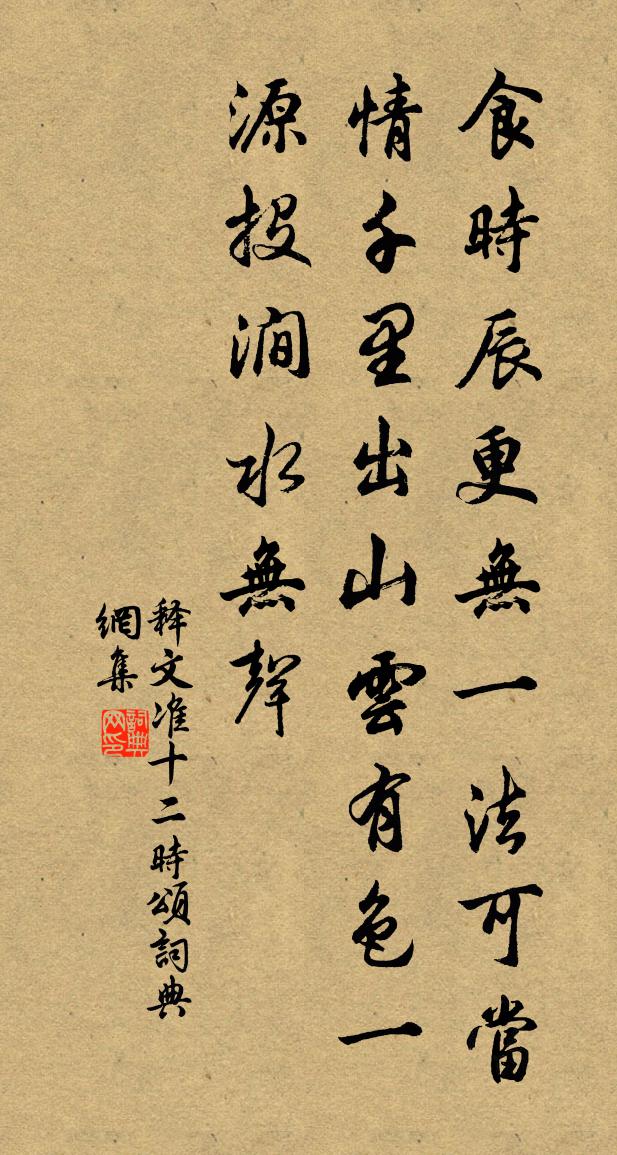 食時辰更無一法可當
情千里出山雲有色一
源投澗水無聲
释文准十二時頌詞典
網集
詞典網印